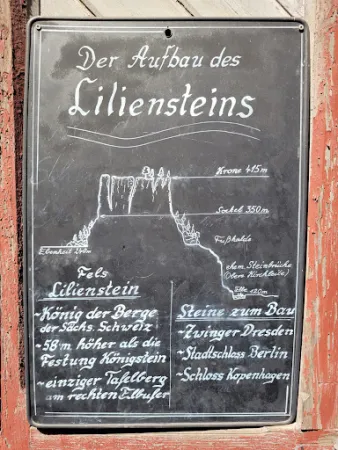 Der Aufbau des
Liliensteins
Krone 415m
Sockel 350m
Fußhalde
Ebenheit
ehem. Steinbrüche
Elbe 120m
Fels
Lilienstein
~König der Berge
der Sächs. Schweiz
~58m höher als die
Festung Königstein
~einziger Tafelberg
am rechten Elbufer
Steine zum Bau
~Zwinger Dresden
~Stadtschloss Berlin
~Schloss Kopenhagen